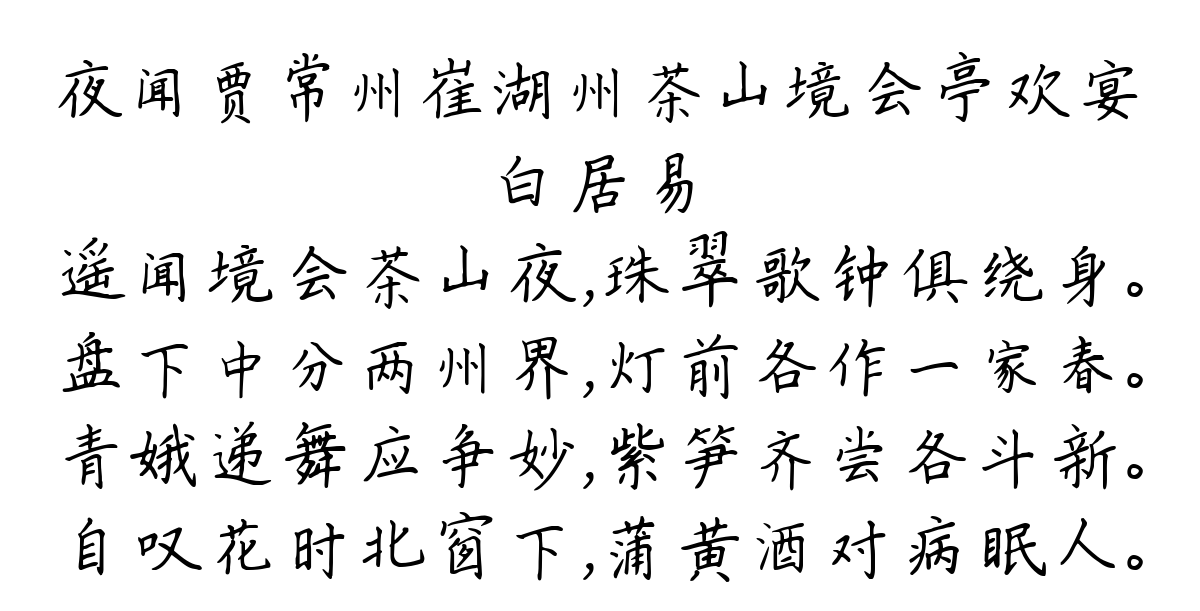 夜闻贾常州崔湖州茶山境会亭欢宴
白居易
遥闻境会茶山夜,珠翠歌钟俱绕身。
盘下中分两州界,灯前各作一家春。
青娥递舞应争妙,紫笋齐尝各斗新。
自叹花时北窗下,蒲黄酒对病眠人。